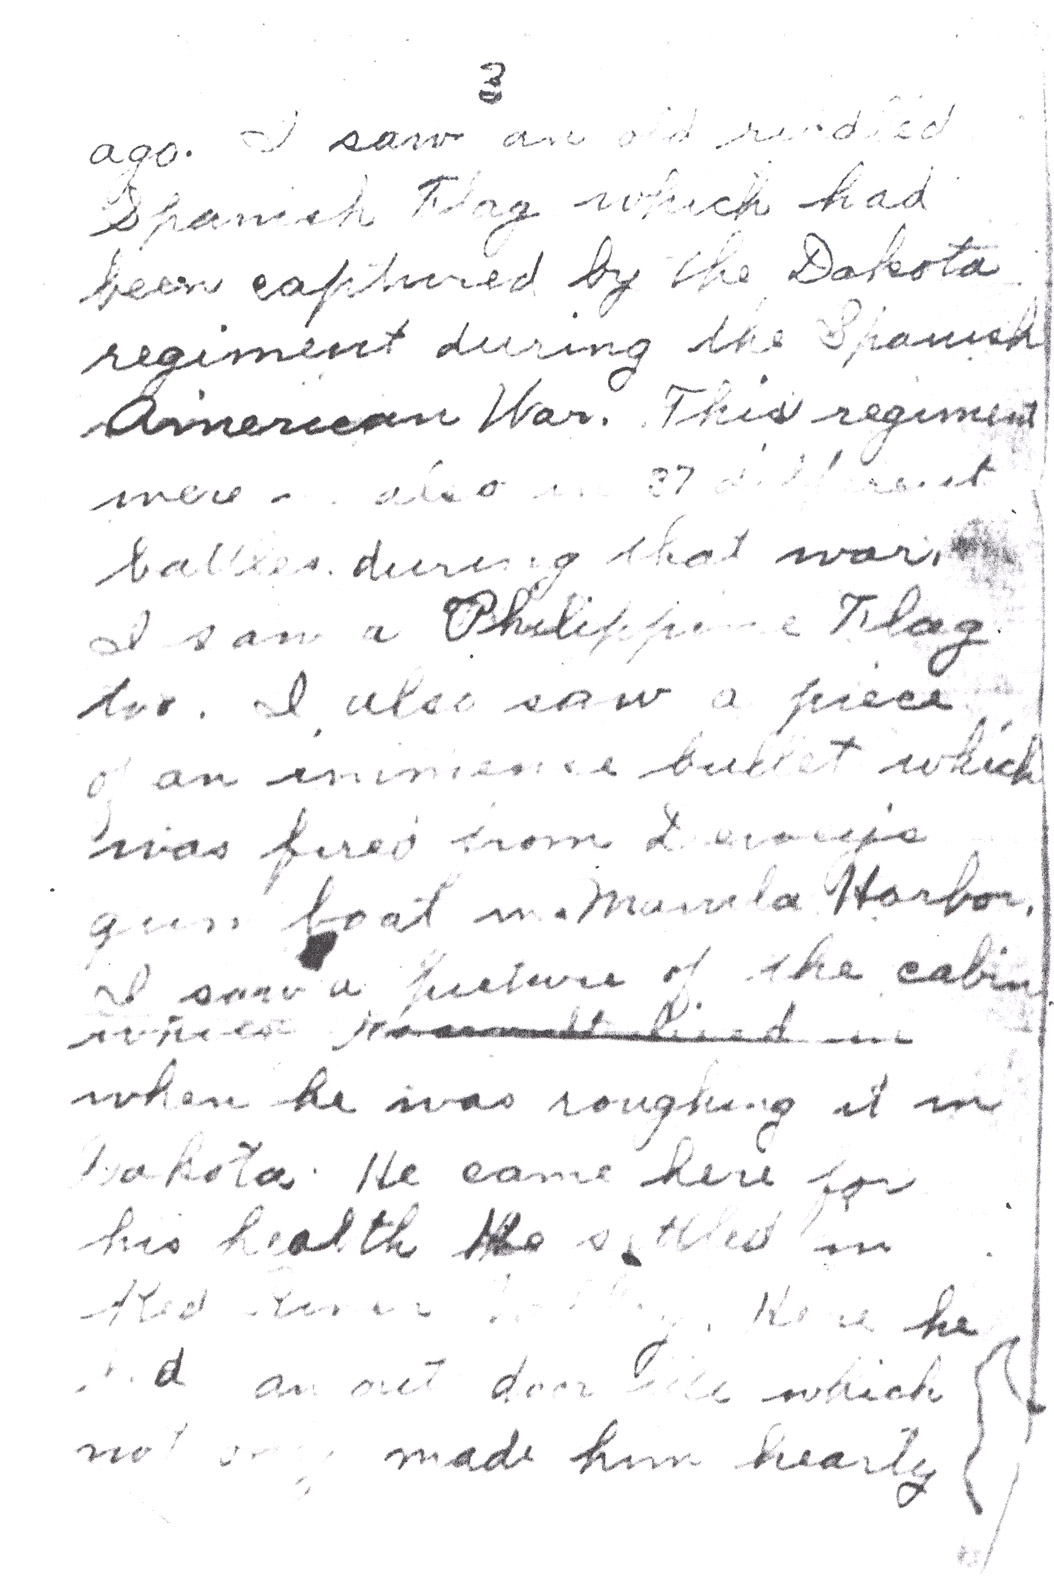 3
ago. I saw an old riddled
Spanish Flag which had
been captured by the Dakota
regiment during the Spanish
American War. This regiment
were also in 37 different
battles during that war.
I saw a Philippine Flag
too. I also saw a piece
of an immense bullet which
was fired from Dewey's
gun boat in Manila Harbor.
I saw a picture of the cabin
which Roosevelt lived in
when he was roughing it in
Dakota. He came here for
his health He settled in
Red River Valley. Here he
led an out door life which
not only made him hearty